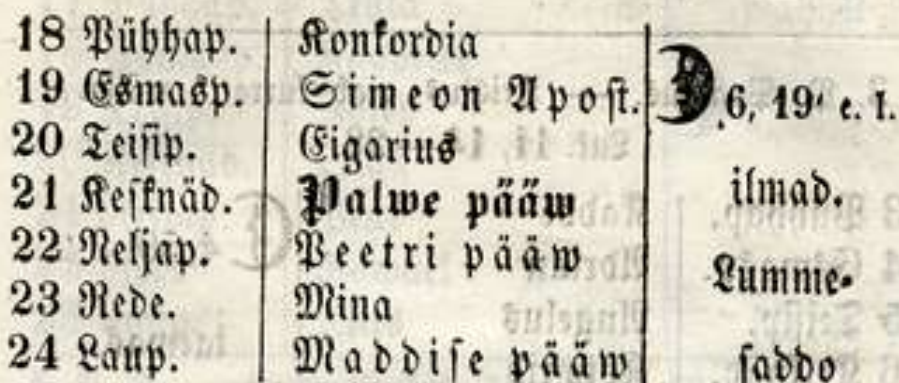 18 Pühhap. Konkordia
19 Esmasp. Simeon Apost. 6, 19' e. l.
20 Teisip. Eigarius
21 Kesknäd. Palwe pääw ilmad.
22 Neljap. Peetri pääw Lumme-
23 Rede. Mina
24 Laup. Maddise pääw saddo